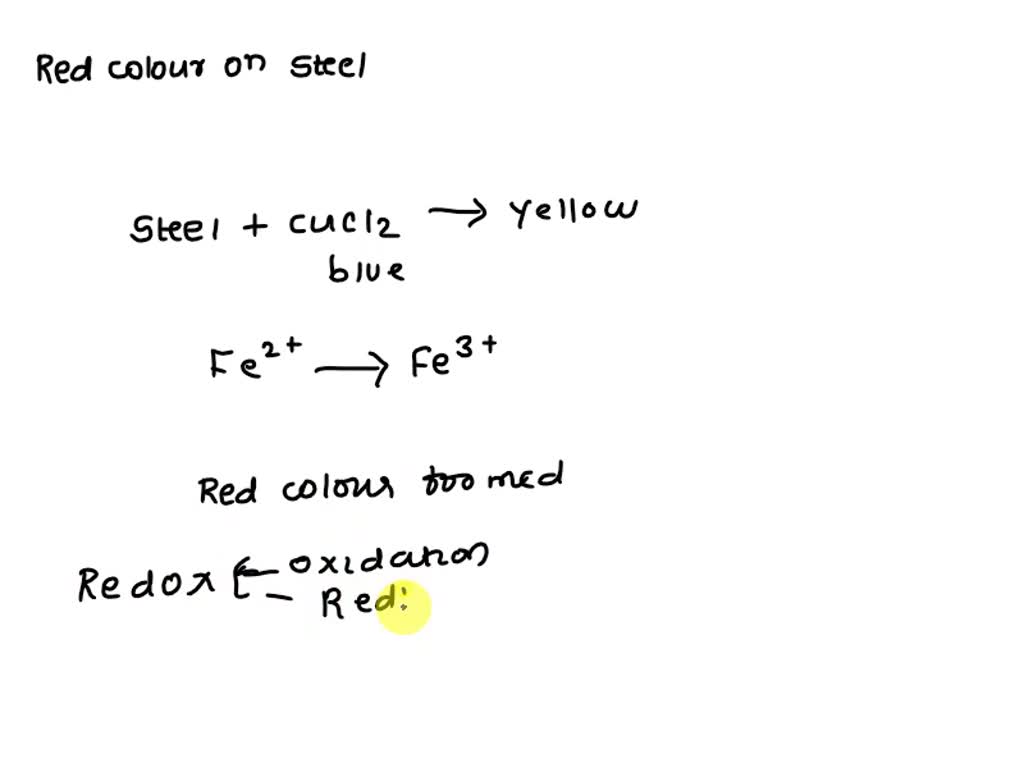 Red colour on steel
Steel + CuCl2 → yellow
blue
Fe²⁺ → Fe³⁺
Red colour
Redox ← oxidation
– Red: